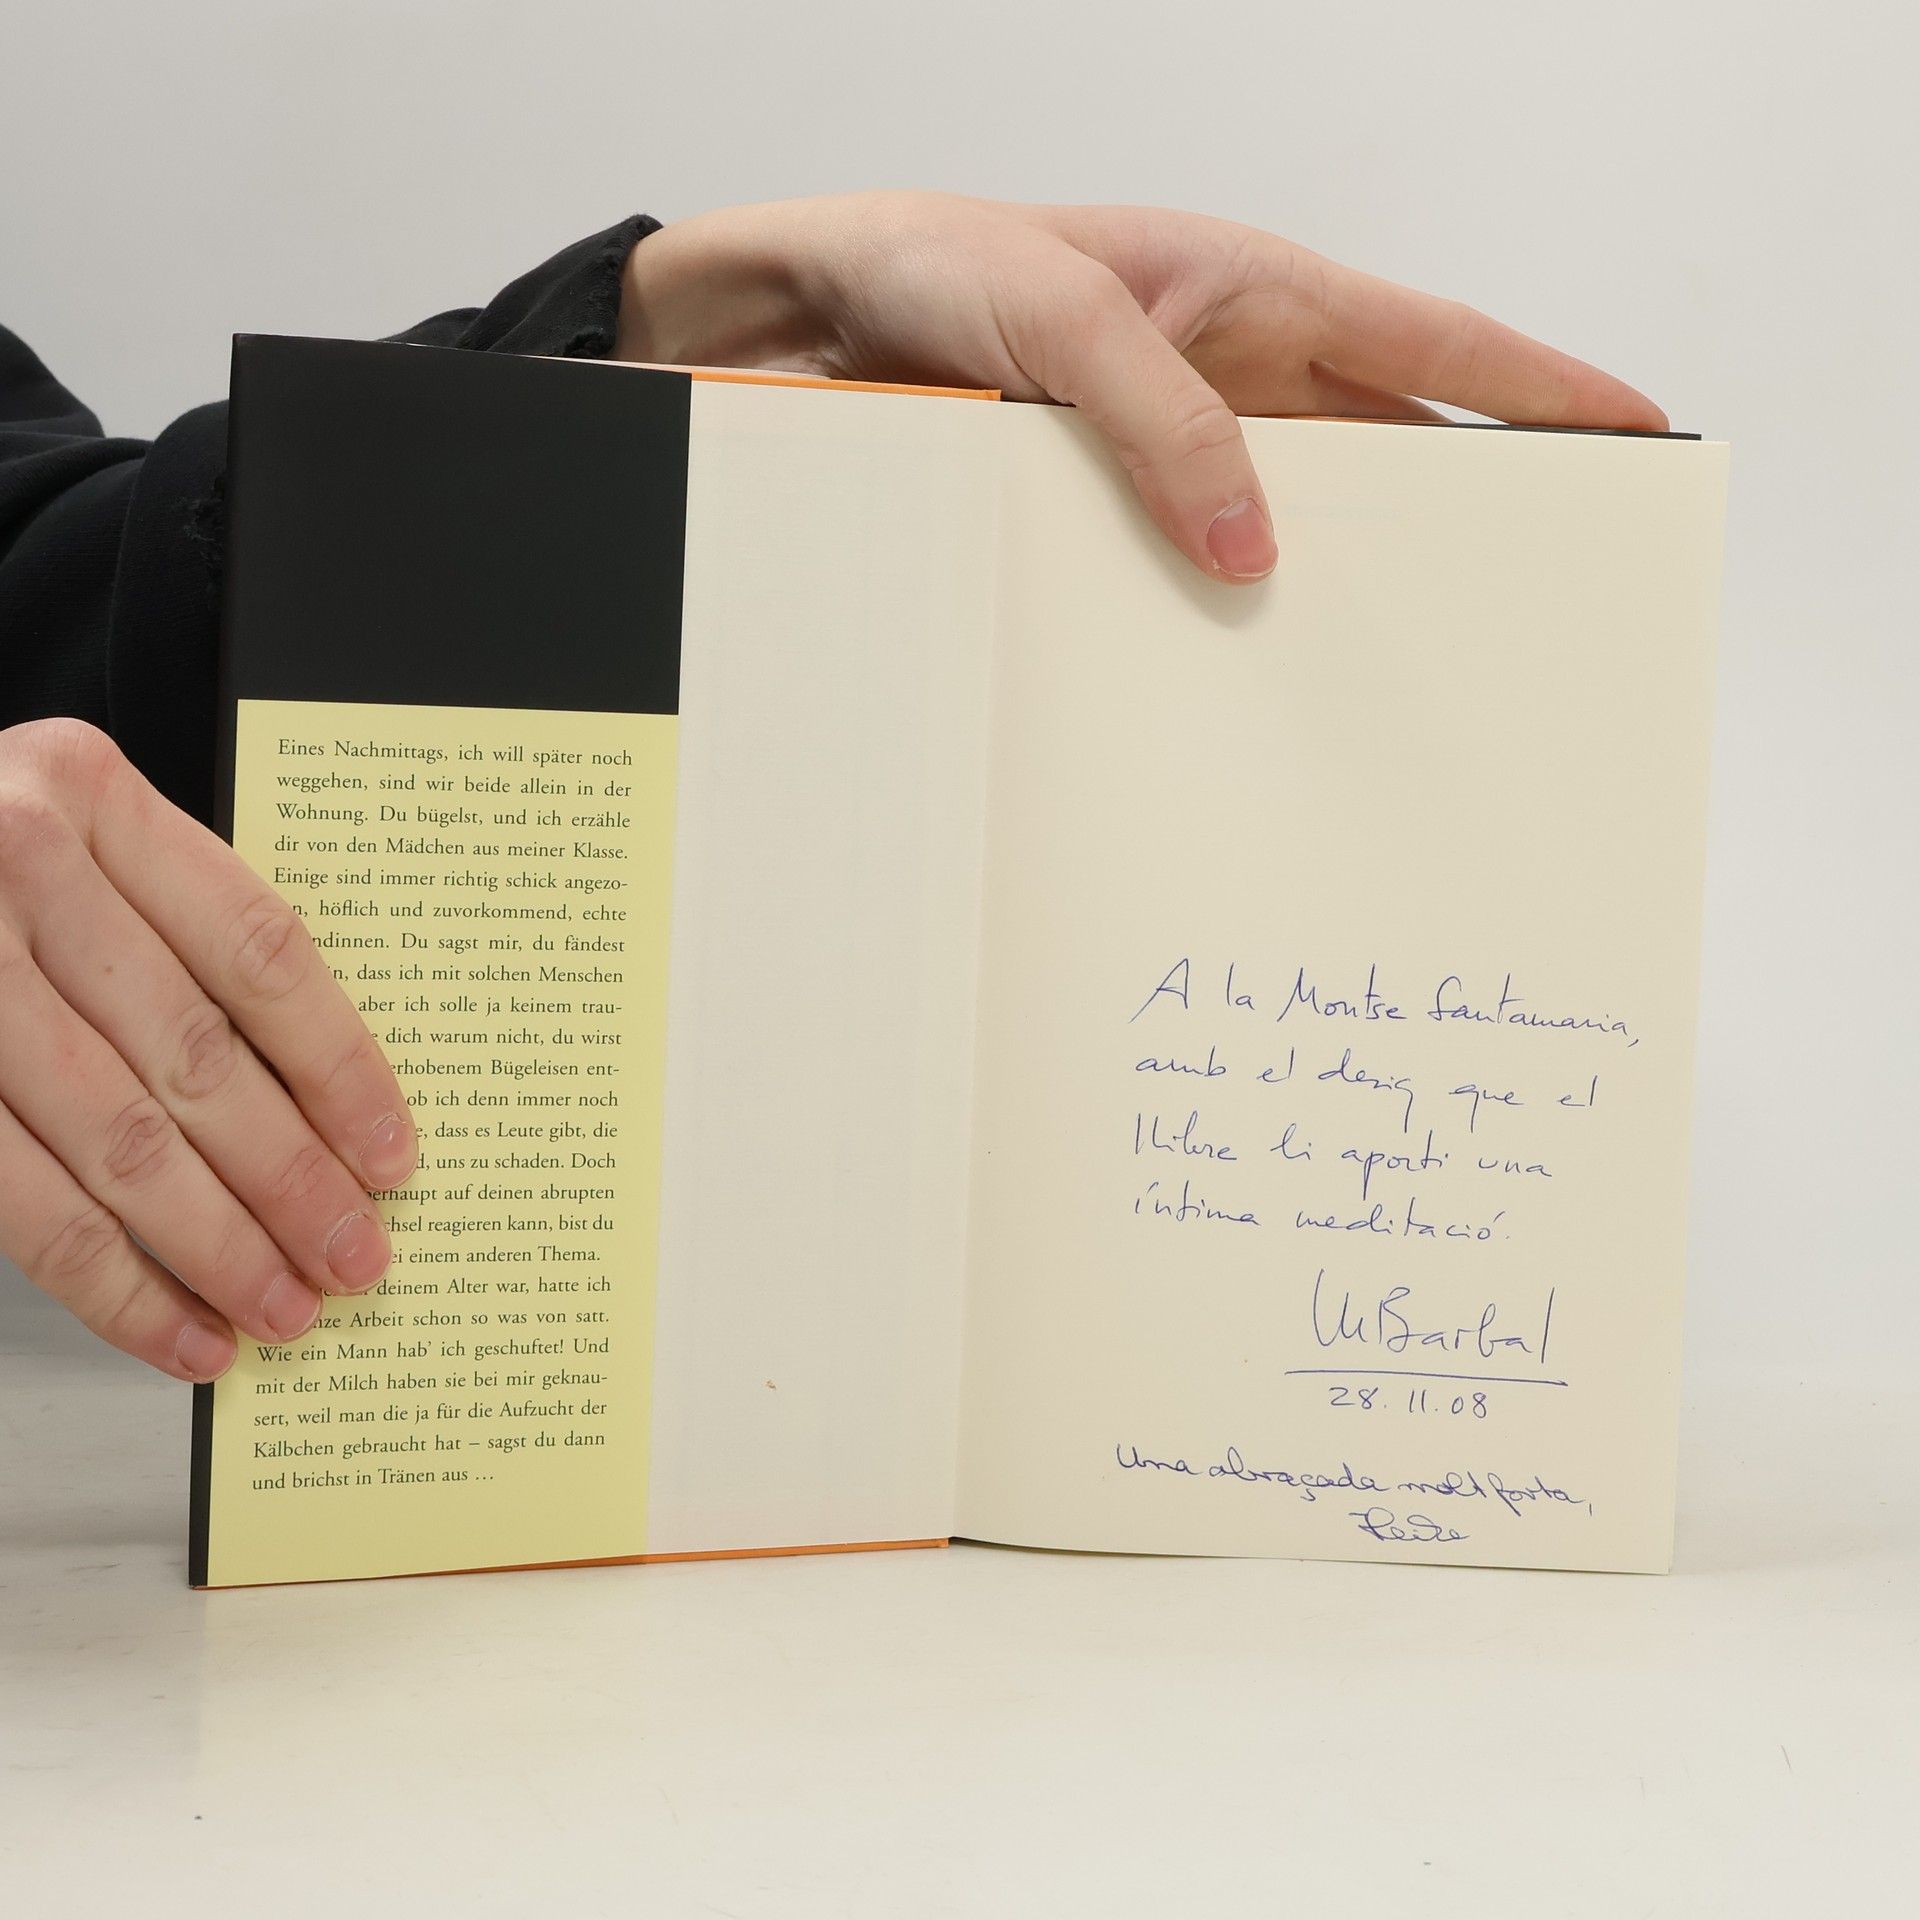 Eines Nachmittags, ich will später noch
weggehen, sind wir beide allein in der
Wohnung. Du bügelst, und ich erzähle
dir von den Mädchen aus meiner Klasse.
Einige sind immer richtig schick angezo-
n, höflich und zuvorkommend, echte
ndinnen. Du sagst mir, du fändest
in, dass ich mit solchen Menschen
aber ich solle ja keinem trau-
e dich warum nicht, du wirst
erhobenem Bügeleisen ent-
ob ich denn immer noch
e, dass es Leute gibt, die
d, uns zu schaden. Doch
berhaupt auf deinen abrupten
chsel reagieren kann, bist du
ei einem anderen Thema.
deinem Alter war, hatte ich
nze Arbeit schon so was von satt.
Wie ein Mann hab' ich geschuftet! Und
mit der Milch haben sie bei mir geknau-
sert, weil man die ja für die Aufzucht der
Kälbchen gebraucht hat – sagst du dann
und brichst in Tränen aus …
A la Montse Santamaria,
amb el desig que el
llibre li aporti una
íntima meditació.
M Barbal
28.11.08
Una abraçada molt forta,
Heike